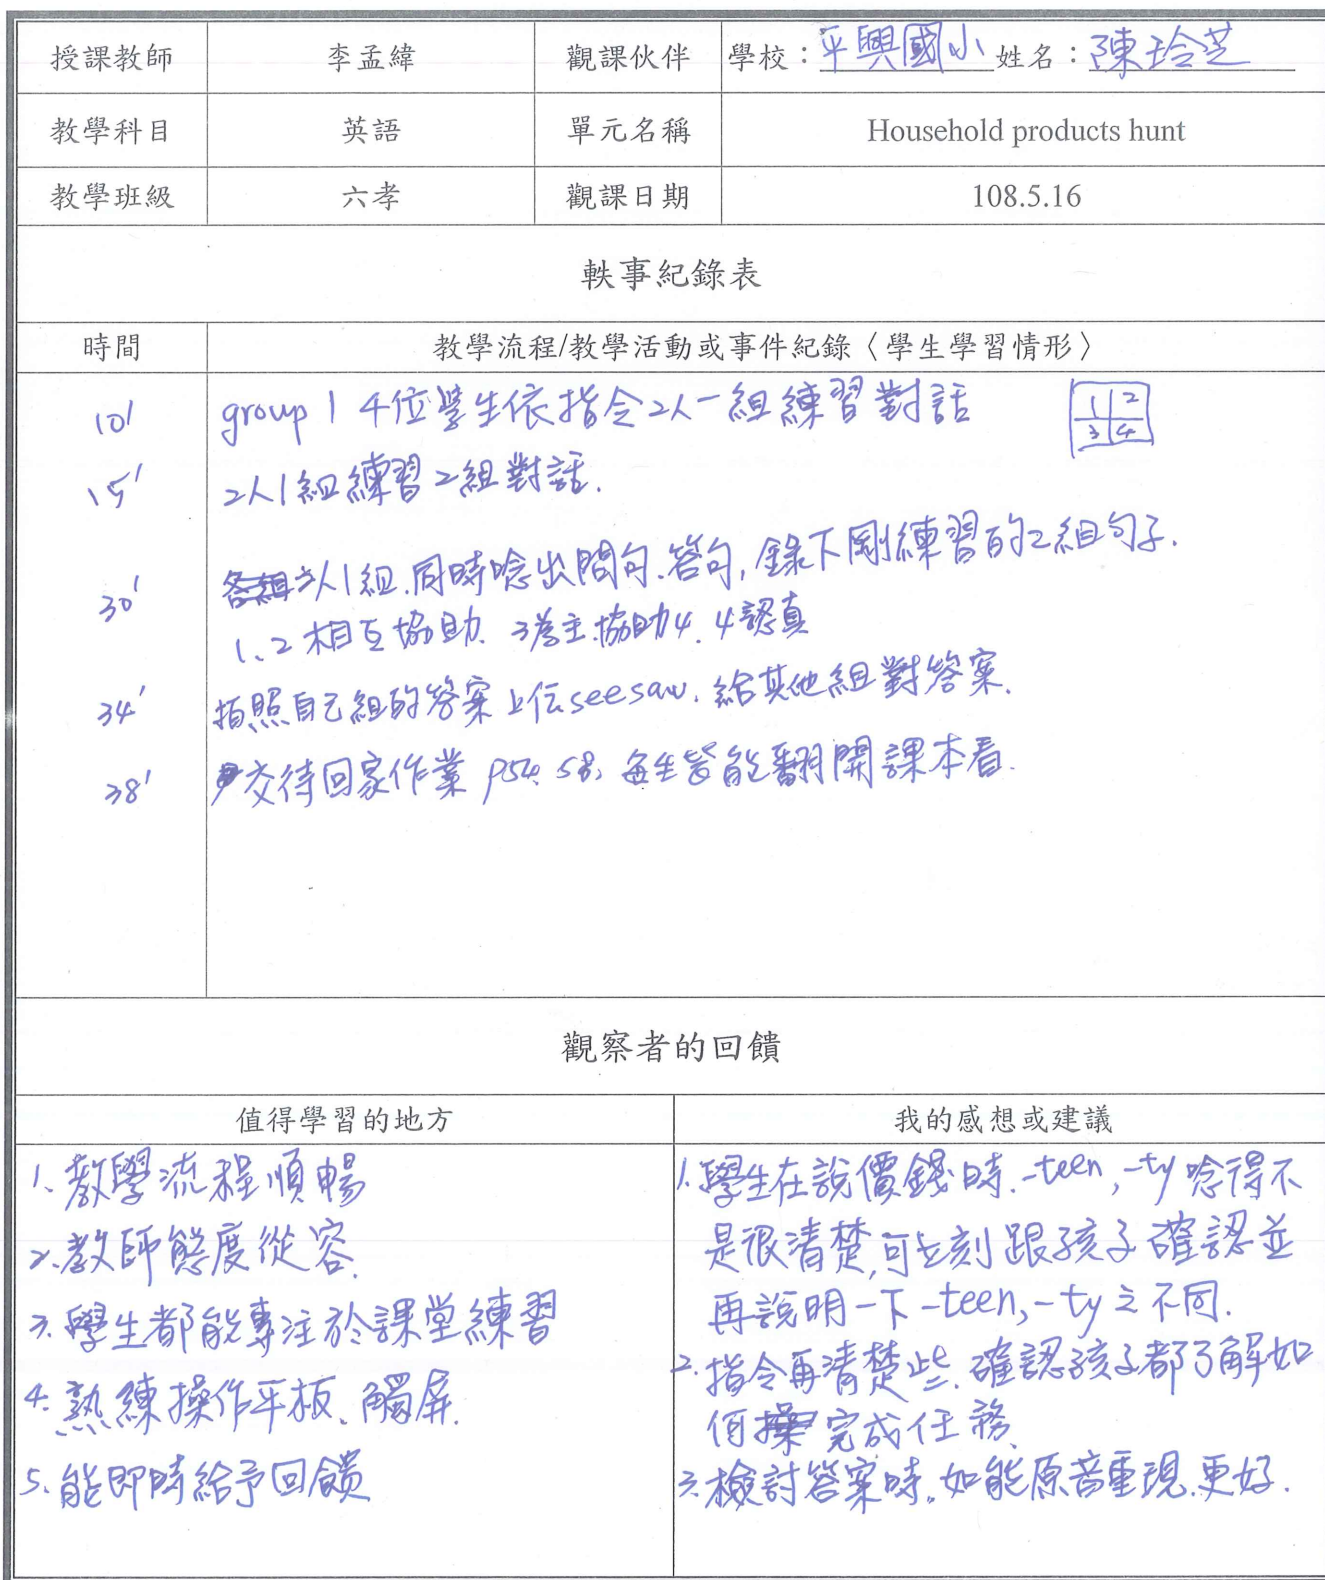 授課教師 李孟緯 觀課伙伴 學校：平興國小 姓名：陳玲芝
教學科目 英語 單元名稱 Household products hunt
教學班級 六孝 觀課日期 108.5.16
軼事紀錄表
時間 教學流程/教學活動或事件紀錄〈學生學習情形〉
10' group 1 4位學生依指令2人一組練習對話 1 2
3 4
15' 2人1組練習2組對話.
30' 2人1組.同時唸出問句.答句,錄下剛練習的2組句子.
1、2相互協助. 3為主.協助4. 4認真
34' 拍照自己組的答案上傳seesaw.給其他組對答案.
38' 交待回家作業 p54. 58. 每生皆能翻開課本看.
觀察者的回饋
值得學習的地方 我的感想或建議
1、教學流程順暢
2、教師態度從容.
3、學生都能專注於課堂練習
4、熟練操作平板、觸屏.
5、能即時給予回饋
1.學生在說價錢時.-teen,-ty唸得不
是很清楚,可立刻跟孩子確認並
再說明一下-teen,-ty之不同.
2.指令再清楚些.確認孩子都了解如
何完成任務.
3.檢討答案時.如能原音重現.更好.